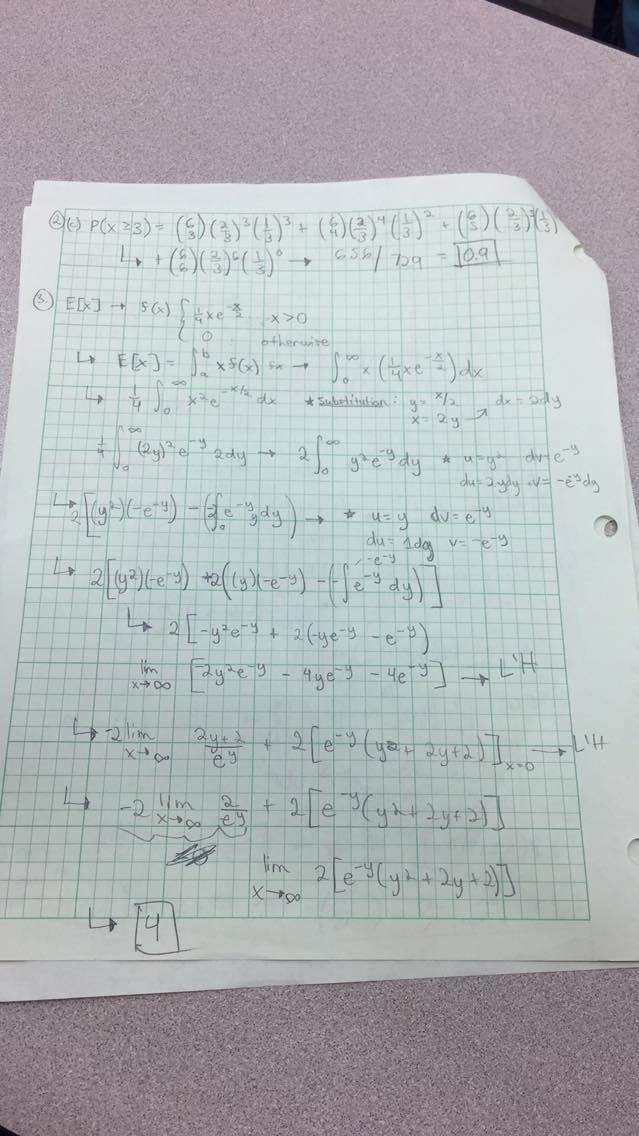 ② (c) P(x ≥ 3) = (6 3)(2/3)^3(1/3)^3 + (6 4)(2/3)^4(1/3)^2 + (6 5)(2/3)^5(1/3)
↳ + (6 6)(2/3)^6(1/3)^0 → 656/729 = 0.9
③. E[x] → f(x) { 1/4 xe^(-x/2) x>0
0 otherwise
↳ E[x] = ∫_a^b x f(x) dx → ∫_0^∞ x (1/4 xe^(-x/2)) dx
↳ 1/4 ∫_0^∞ x^2 e^(-x/2) dx * Substitution: y = x/2 dx = 2dy
x = 2y
1/4 ∫_0^∞ (2y)^2 e^-y 2dy → 2∫_0^∞ y^2 e^-y dy * u = y^2 dv = e^-y
du = 2ydy v = -e^-y dy
↳ 2[(y^2)(-e^-y) - (-2∫_0 e^-y y dy) → * u = y dv = e^-y
du = 1dy v = -e^-y
-e^-y
↳ 2[(y^2)(-e^-y) +2((y)(-e^-y) - (-∫e^-y dy)]
↳ 2[-y^2e^-y + 2(-ye^-y - e^-y)
lim x→∞ [-2y^2e^-y - 4ye^-y - 4e^-y] → L'H
↳ -2 lim x→∞ 2y+2/e^y + 2[e^-y(y^2 + 2y+2)]_x=0 → L'H
↳ -2 lim x→∞ 2/e^y + 2[e^-y(y^2+2y+2)]
lim x→∞ 2[e^-y(y^2+2y+2)]
↳ 4